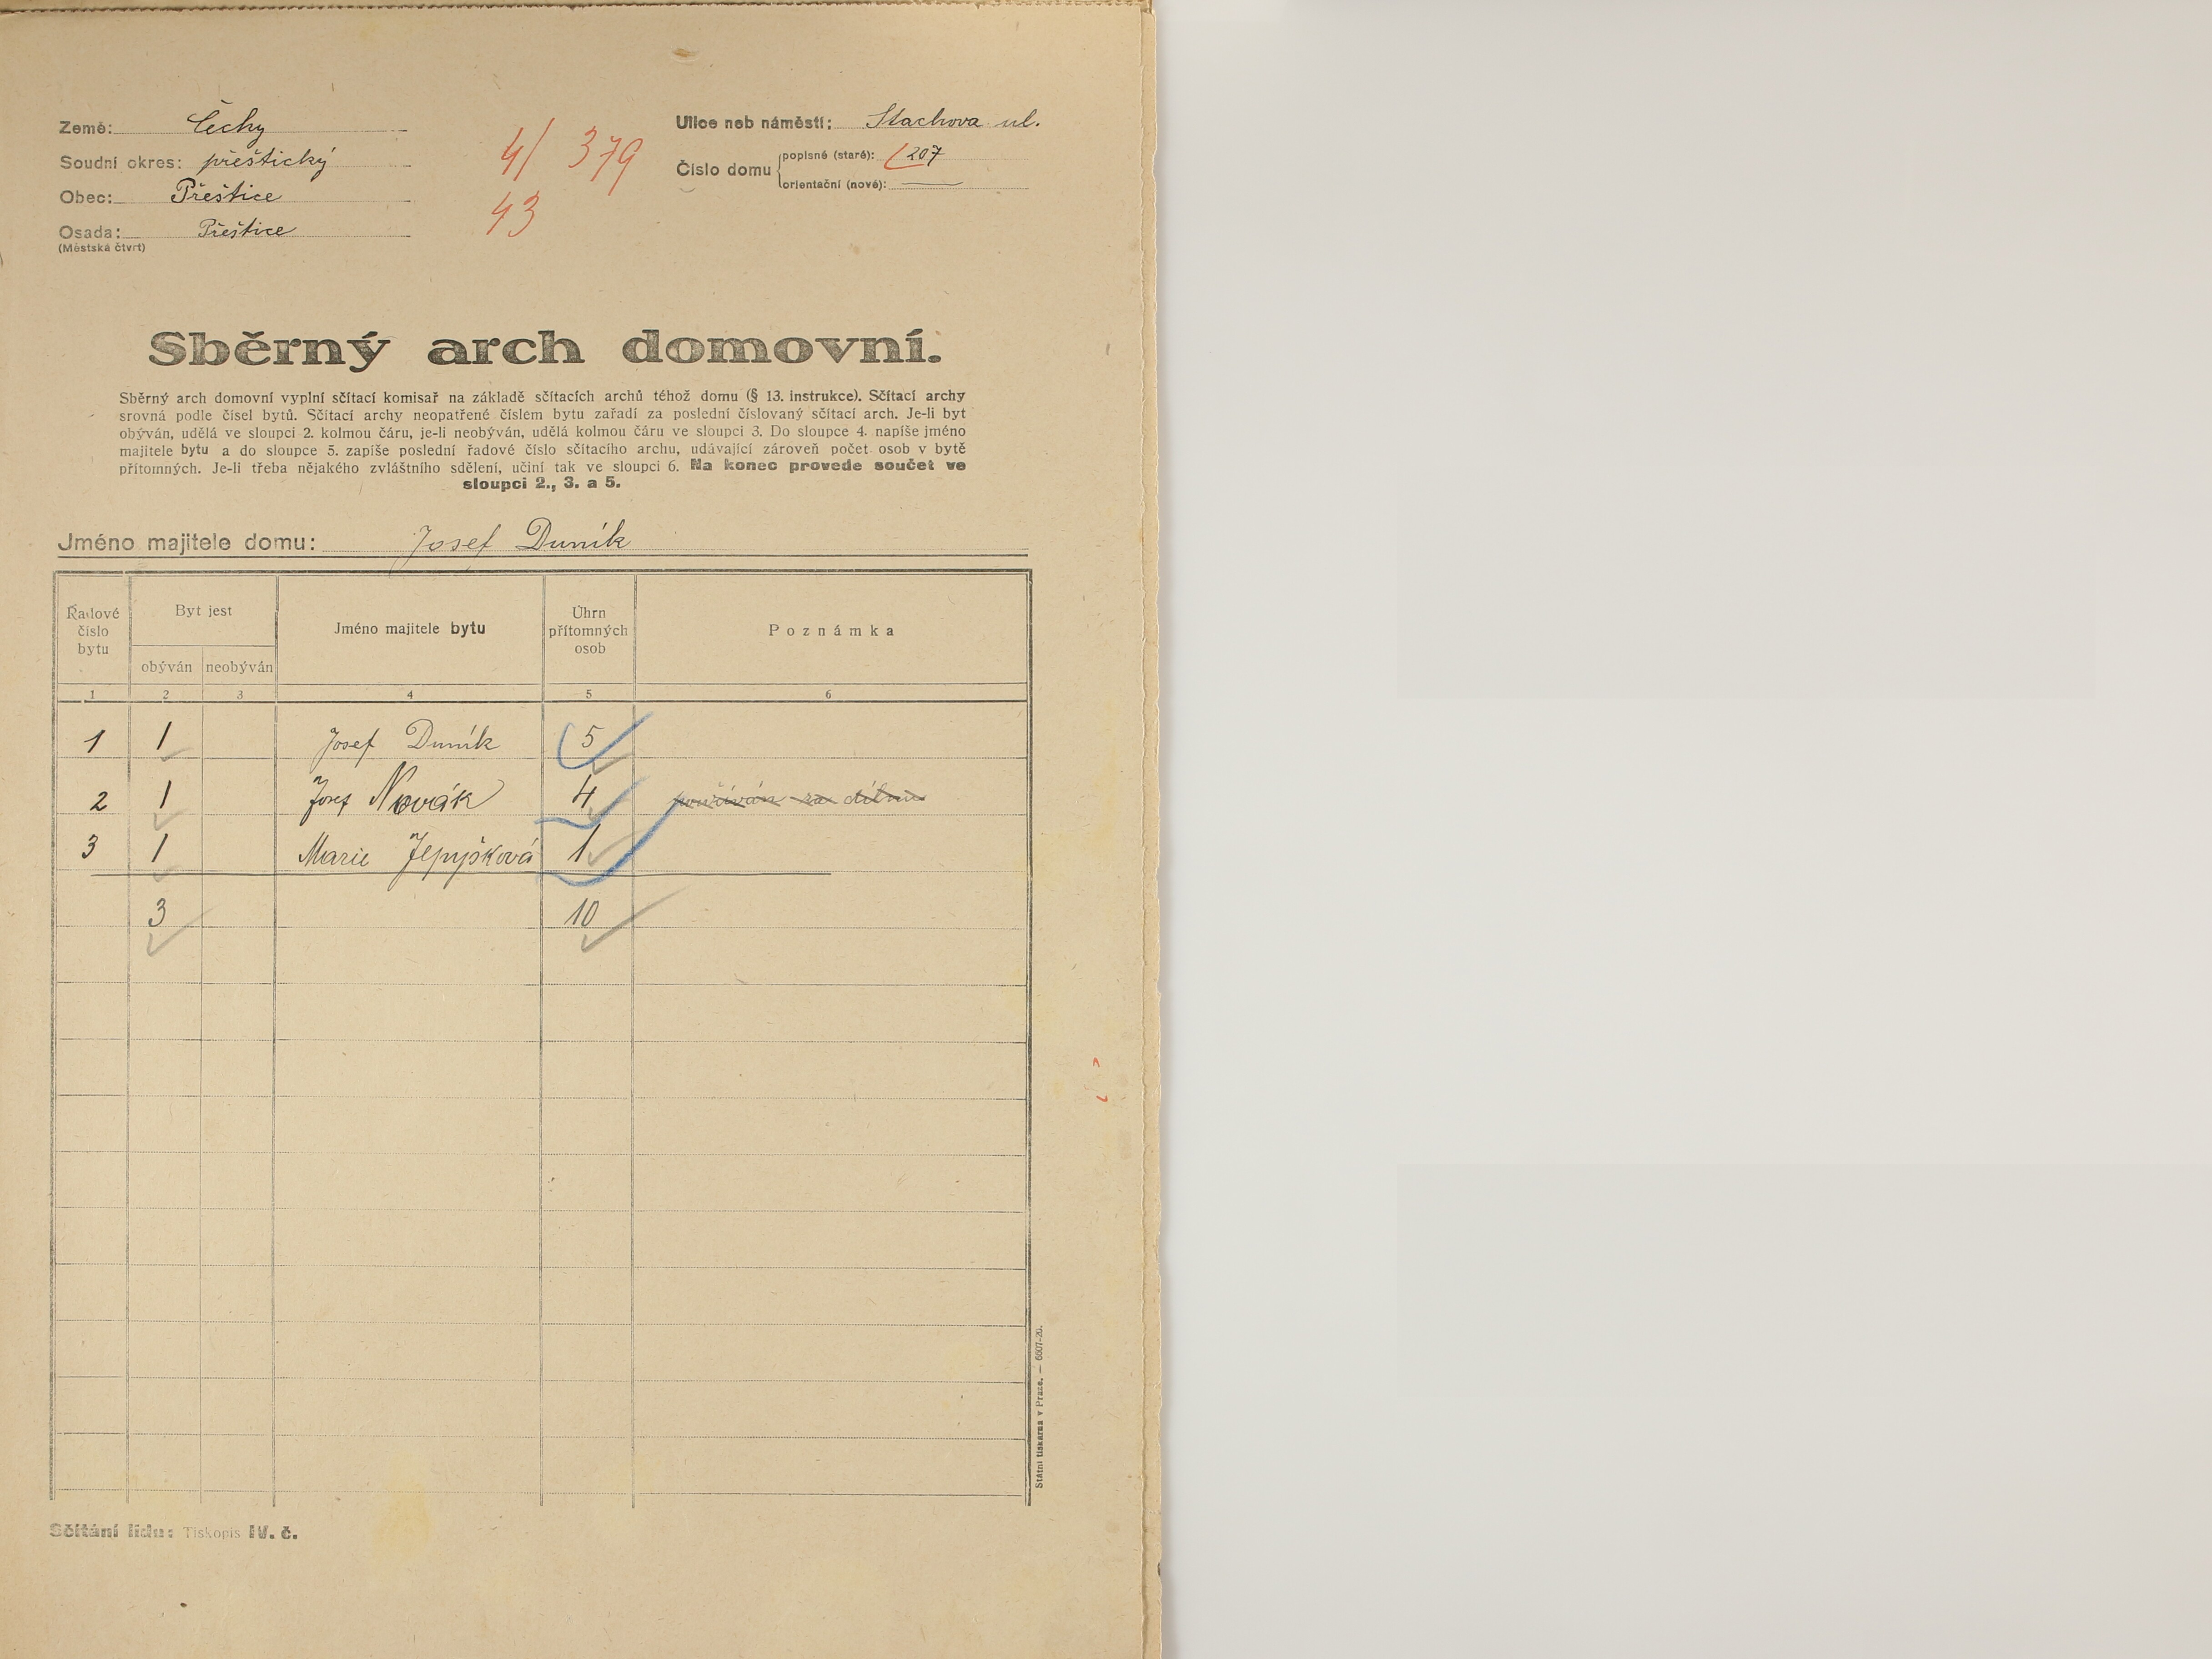 Země: Čechy
Soudní okres: přeštický
Obec: Přeštice
Osada: Přeštice
(Městská čtvrť)
4/ 379
43
Ulice neb náměstí: Stachova ul.
Číslo domu
popisné (staré): 207
orientační (nové): —
Sběrný arch domovní.
Sběrný arch domovní vyplní sčítací komisař na základě sčítacích archů téhož domu (§ 13. instrukce). Sčítací archy
srovná podle čísel bytů. Sčítací archy neopatřené číslem bytu zařadí za poslední číslovaný sčítací arch. Je-li byt
obýván, udělá ve sloupci 2. kolmou čáru, je-li neobýván, udělá kolmou čáru ve sloupci 3. Do sloupce 4. napíše jméno
majitele bytu a do sloupce 5. zapíše poslední řadové číslo sčítacího archu, udávající zároveň počet osob v bytě
přítomných. Je-li třeba nějakého zvláštního sdělení, učiní tak ve sloupci 6. Na konec provede součet ve
sloupci 2., 3. a 5.
Jméno majitele domu: Josef Duník
Řadové číslo bytu
Byt jest
obýván neobýván
Jméno majitele bytu
Úhrn přítomných osob
Poznámka
1 2 3 4 5 6
1 1 Josef Duník 5
2 1 Josef Novák 4 za dílnu
3 1 Marie 1
3 10
Státní tiskárna v Praze. — 6607-20.
Sčítání lidu: Tiskopis IV. č.